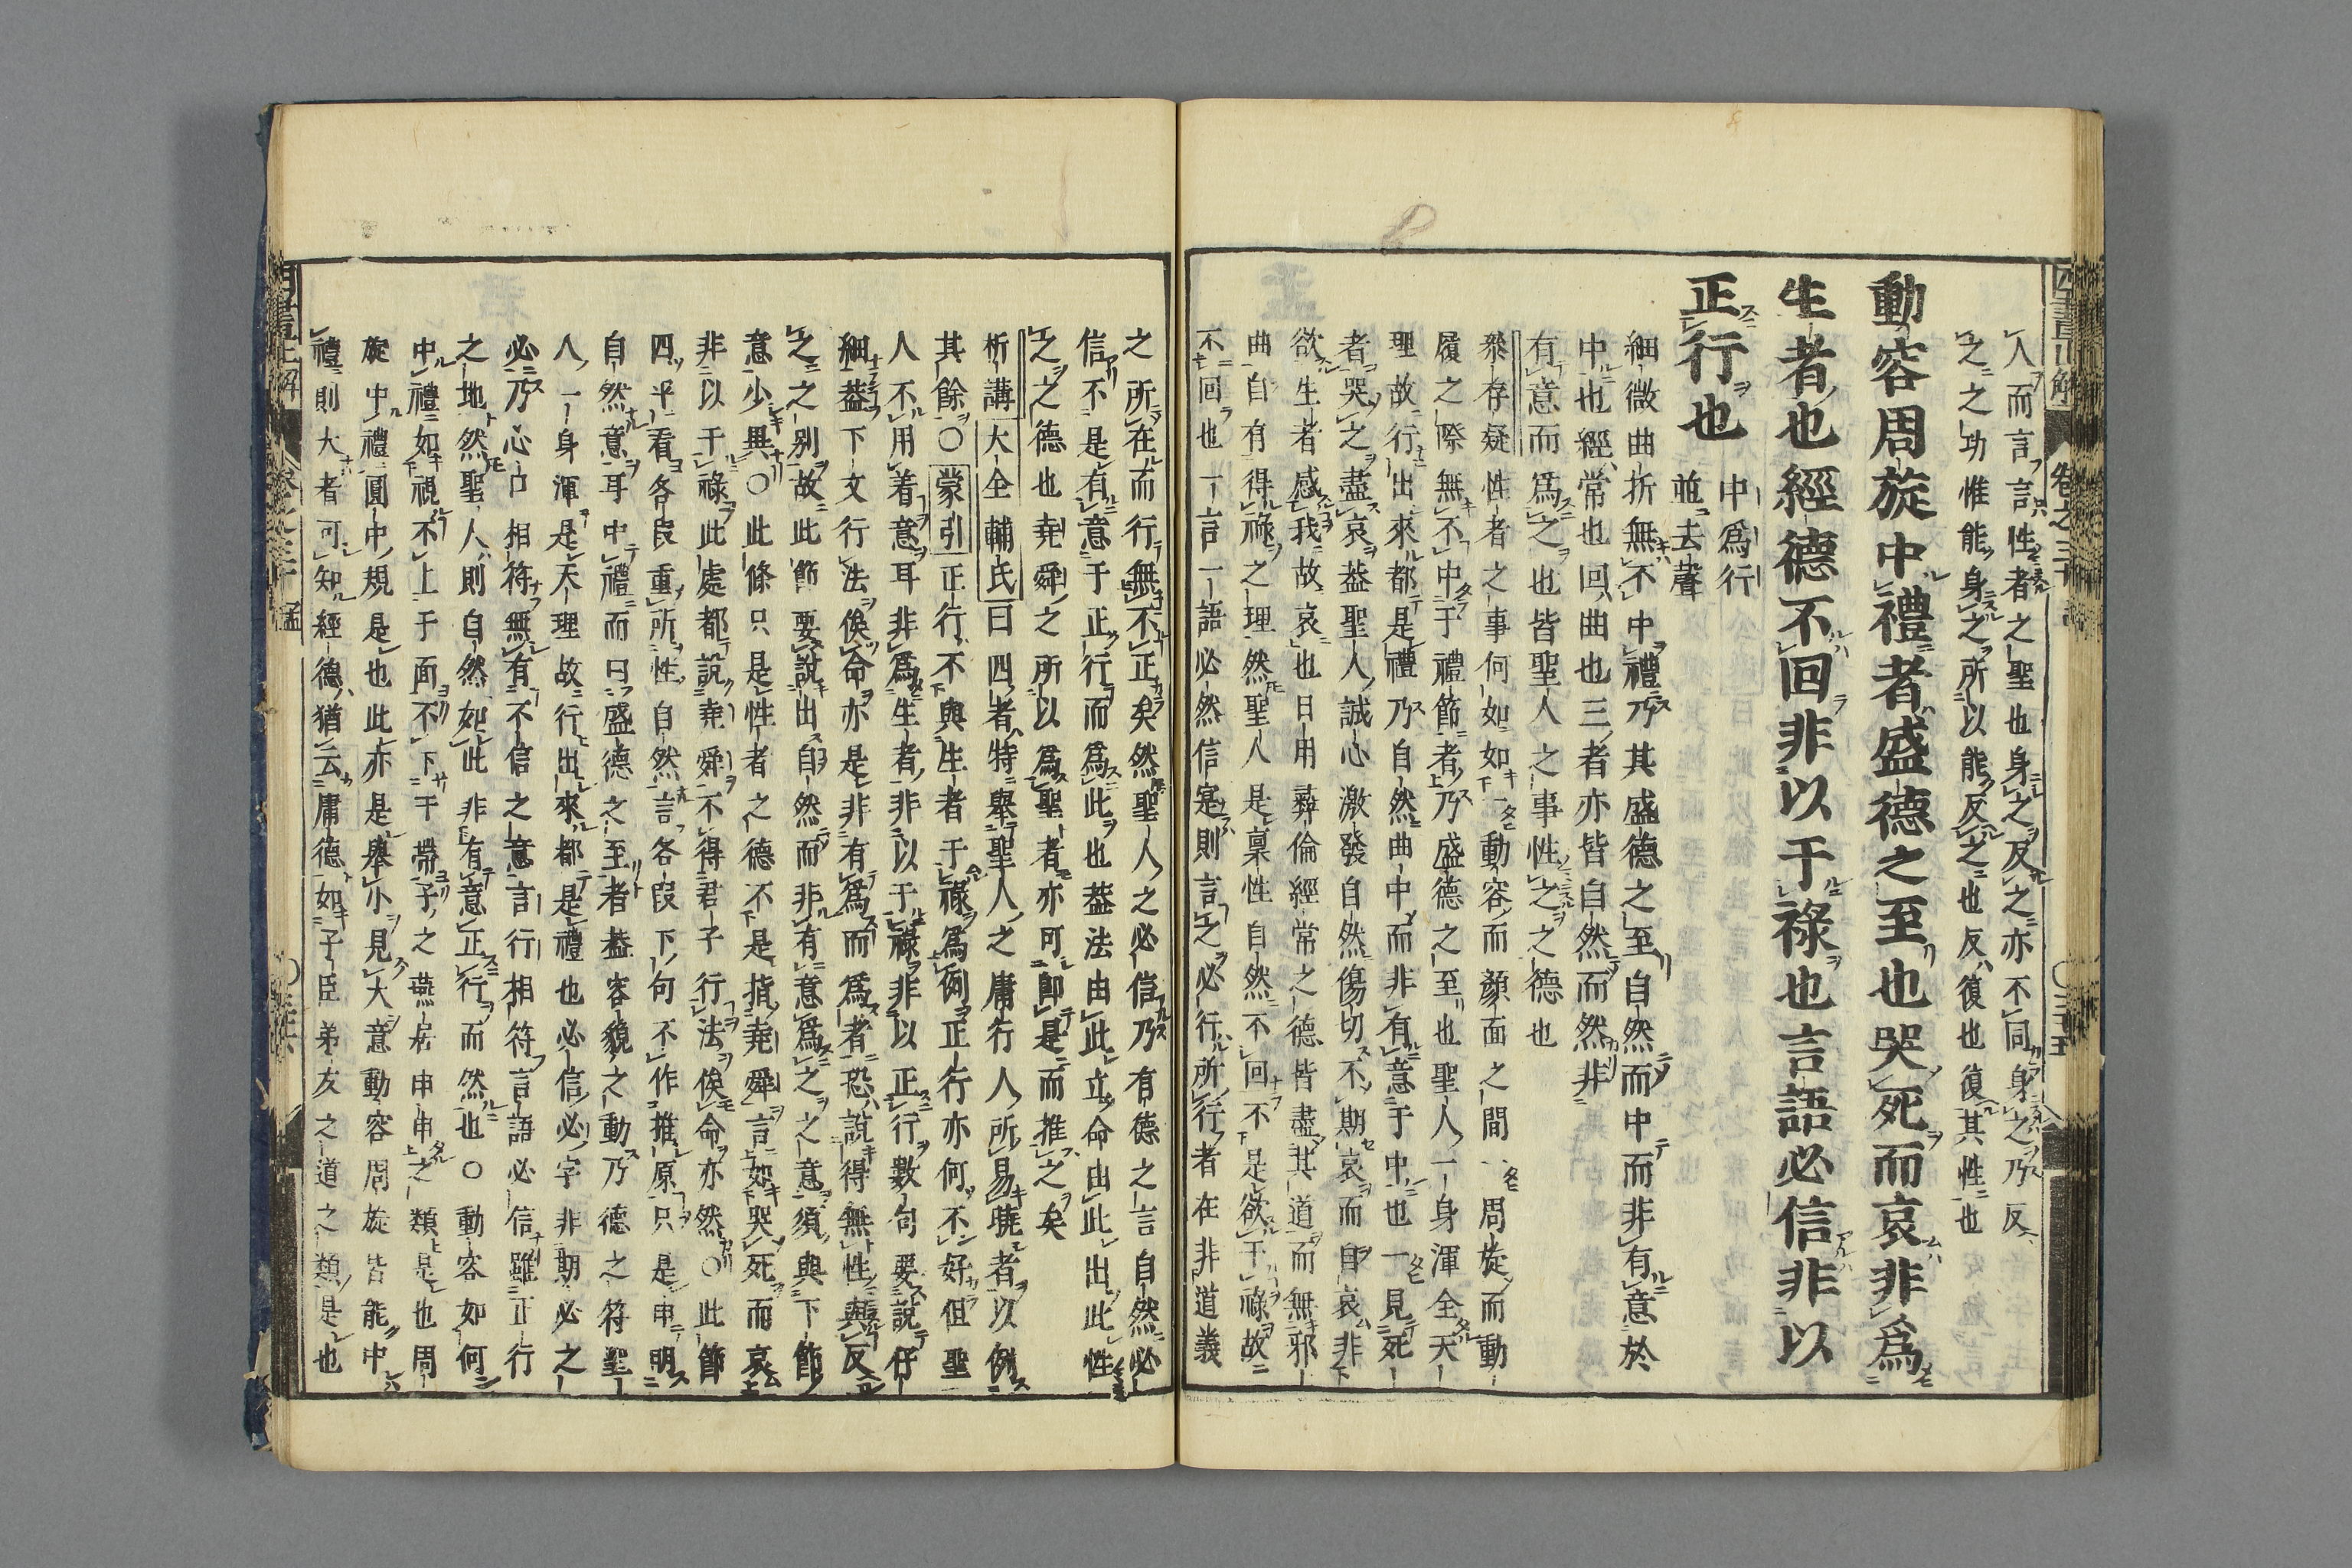 人而言言性者之聖也身之反之亦不同身之乃反
之之功惟能身之所以能反之也反復也復其性也
動容周旋中禮者盛德之至也哭死而哀非爲
生者也經德不回非以干祿也言語必信非以
正行也
中爲行
並去聲
細微曲折無不中禮乃其盛德之至自然而中而非有意於
中也經常也回曲也三者亦皆自然而然非
有意而爲之也皆聖人之事性之之德也
存疑性者之事何如如一動容而顏面之間一周旋而動
履之際無不中于禮節者乃盛德之至也聖人一身渾全天
理故行出來都是禮乃自然曲中而非有意于中也一見死
者哭之盡哀蓋聖人誠心激發自然傷切不期哀而自哀非
欲生者感我故哀也日用彝倫經常之德皆盡其道而無邪
曲自有得祿之理然聖人是稟性自然不回不是欲干祿故
不回也一言一語必然信寔則言之必行所行者在非道義
之所在而行無不正矣然聖人之必信乃有德之言自然必
信不是有意于正行而爲此也蓋法由此立命由此出此性
之之德也堯舜之所以爲聖者亦可即是而推之矣
析講大全輔氏曰四者特舉聖人之庸行人所易曉者以例
其餘○蒙引正行不與生者干祿爲例正行亦何不好但聖
人不用着意耳非爲生者非以干祿非以正行數句要說仔
細蓋下文行法俟命亦是非有爲而爲者恐說得無性與反
之之別故此節要說出自然而非有意爲之之意須與下節
意少異○此條只是性者之德不是指堯舜言如哭死而哀
非以干祿此處都說堯舜不得君子行法俟命亦然○此節
四平看各段重所性自然言各段下句不作推原只是申明
自然意耳中禮而曰盛德之至者蓋容貌之動乃德之符聖
人一身渾是天理故行出來都是禮也必信必字非期必之
必乃心口相符無有不信之意言行相符言語必信雖正行
之地然聖人則自然如此非有意正行而然也○動容如何
中禮如視不上于面不下于帶子之燕居申申之類是也周
旋中禮圓中規是也此亦是舉小見大意動容周旋皆能中
禮則大者可知經德猶云庸德如子臣弟友之道之類是也